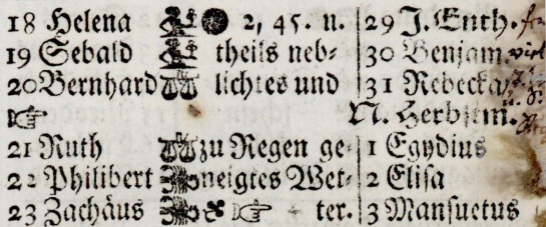 18 Helena 2, 45. n. 29 J. Enth.
19 Sebald theils neb⸗ 30 Benjam.
20 Bernhard lichtes und 31 Rebecka
N. Herbstm.
21 Ruth zu Regen ge⸗ 1 Egydius
22 Philibert neigtes Wet⸗ 2 Elisa
23 Zachäus ter. 3 Mansuetus